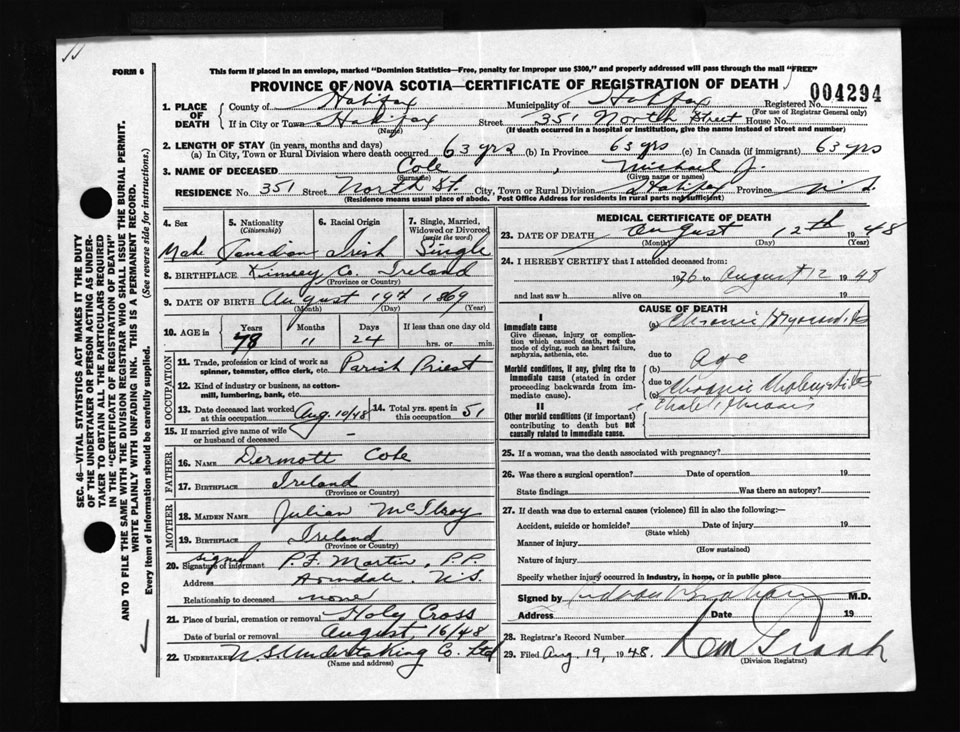 FORM 6
This form if placed in an envelope, marked "Dominion Statistics—Free, penalty for improper use $300," and properly addressed will pass through the mail "FREE"
PROVINCE OF NOVA SCOTIA—CERTIFICATE OF REGISTRATION OF DEATH
004294
1. PLACE OF DEATH
County of Halifax Municipality of Halifax Registered No.
(For use of Registrar General only)
If in City or Town Halifax Street 351 North Street House No.
(Name) (If death occurred in a hospital or institution, give the name instead of street and number)
2. LENGTH OF STAY (in years, months and days)
(a) In City, Town or Rural Division where death occurred 63 yrs (b) In Province 63 yrs (c) In Canada (if immigrant) 63 yrs
3. NAME OF DECEASED Cole, Michael J.
(Surname) (Given name or names)
RESIDENCE No. 351 Street North St. City, Town or Rural Division Halifax Province N.S.
(Residence means usual place of abode. Post Office Address for residents in rural parts not sufficient)
4. Sex 5. Nationality 6. Racial Origin 7. Single, Married,
(Citizenship) Widowed or Divorced
(write the word)
Male Canadian Irish Single
8. BIRTHPLACE Co. Ireland
(Province or Country)
9. DATE OF BIRTH August 19th 1869
(Month) (Day) (Year)
10. AGE in Years Months Days If less than one day old
78 11 24 hrs. or min.
OCCUPATION
11. Trade, profession or kind of work as Parish Priest
spinner, teamster, office clerk, etc.
12. Kind of industry or business, as cotton-
mill, lumbering, bank, etc.
13. Date deceased last worked at this occupation Aug. 10/48 14. Total yrs. spent in this occupation 51
15. If married give name of wife
or husband of deceased —
FATHER
16. NAME Dermott Cole
17. BIRTHPLACE Ireland
(Province or Country)
MOTHER
18. MAIDEN NAME Julian McIlroy
19. BIRTHPLACE Ireland
(Province or Country)
signed
20. Signature of informant P.F. Martin, P.P.
Address Armdale, N.S.
Relationship to deceased none
21. Place of burial, cremation or removal Holy Cross
Date of burial or removal August, 16/48
22. UNDERTAKER N.S. Undertaking Co. Ltd
(Name and address)
MEDICAL CERTIFICATE OF DEATH
23. DATE OF DEATH August 12th 1948
(Month) (Day) (Year)
24. I HEREBY CERTIFY that I attended deceased from:
1936 to August 12 1948
and last saw h alive on 19
CAUSE OF DEATH
I
Immediate cause
Give disease, injury or complication which caused death, not the mode of dying, such as heart failure, asphyxia, asthenia, etc.
(a) Chronic Myocarditis
due to
Morbid conditions, if any, giving rise to immediate cause (stated in order proceeding backwards from immediate cause).
(b) age
due to
(c) Chronic Cholecystitis
II
Other morbid conditions (if important) contributing to death but not causally related to immediate cause.
25. If a woman, was the death associated with pregnancy?
26. Was there a surgical operation? Date of operation 19
State findings Was there an autopsy?
27. If death was due to external causes (violence) fill in also the following:—
Accident, suicide or homicide? Date of injury 19
(State which)
Manner of injury
(How sustained)
Nature of injury
Specify whether injury occurred in industry, in home, or in public place
Signed by M.D.
Address Date 19
28. Registrar's Record Number
29. Filed Aug. 19, 1948.
(Division Registrar)
SEC. 46—VITAL STATISTICS ACT MAKES IT THE DUTY
OF THE UNDERTAKER OR PERSON ACTING AS UNDER-
TAKER TO OBTAIN ALL THE PARTICULARS REQUIRED
IN THE "CERTIFICATE OF REGISTRATION OF DEATH"
AND TO FILE THE SAME WITH THE DIVISION REGISTRAR WHO SHALL ISSUE THE BURIAL PERMIT.
WRITE PLAINLY WITH UNFADING INK. THIS IS A PERMANENT RECORD.
Every item of information should be carefully supplied. (See reverse side for instructions.)